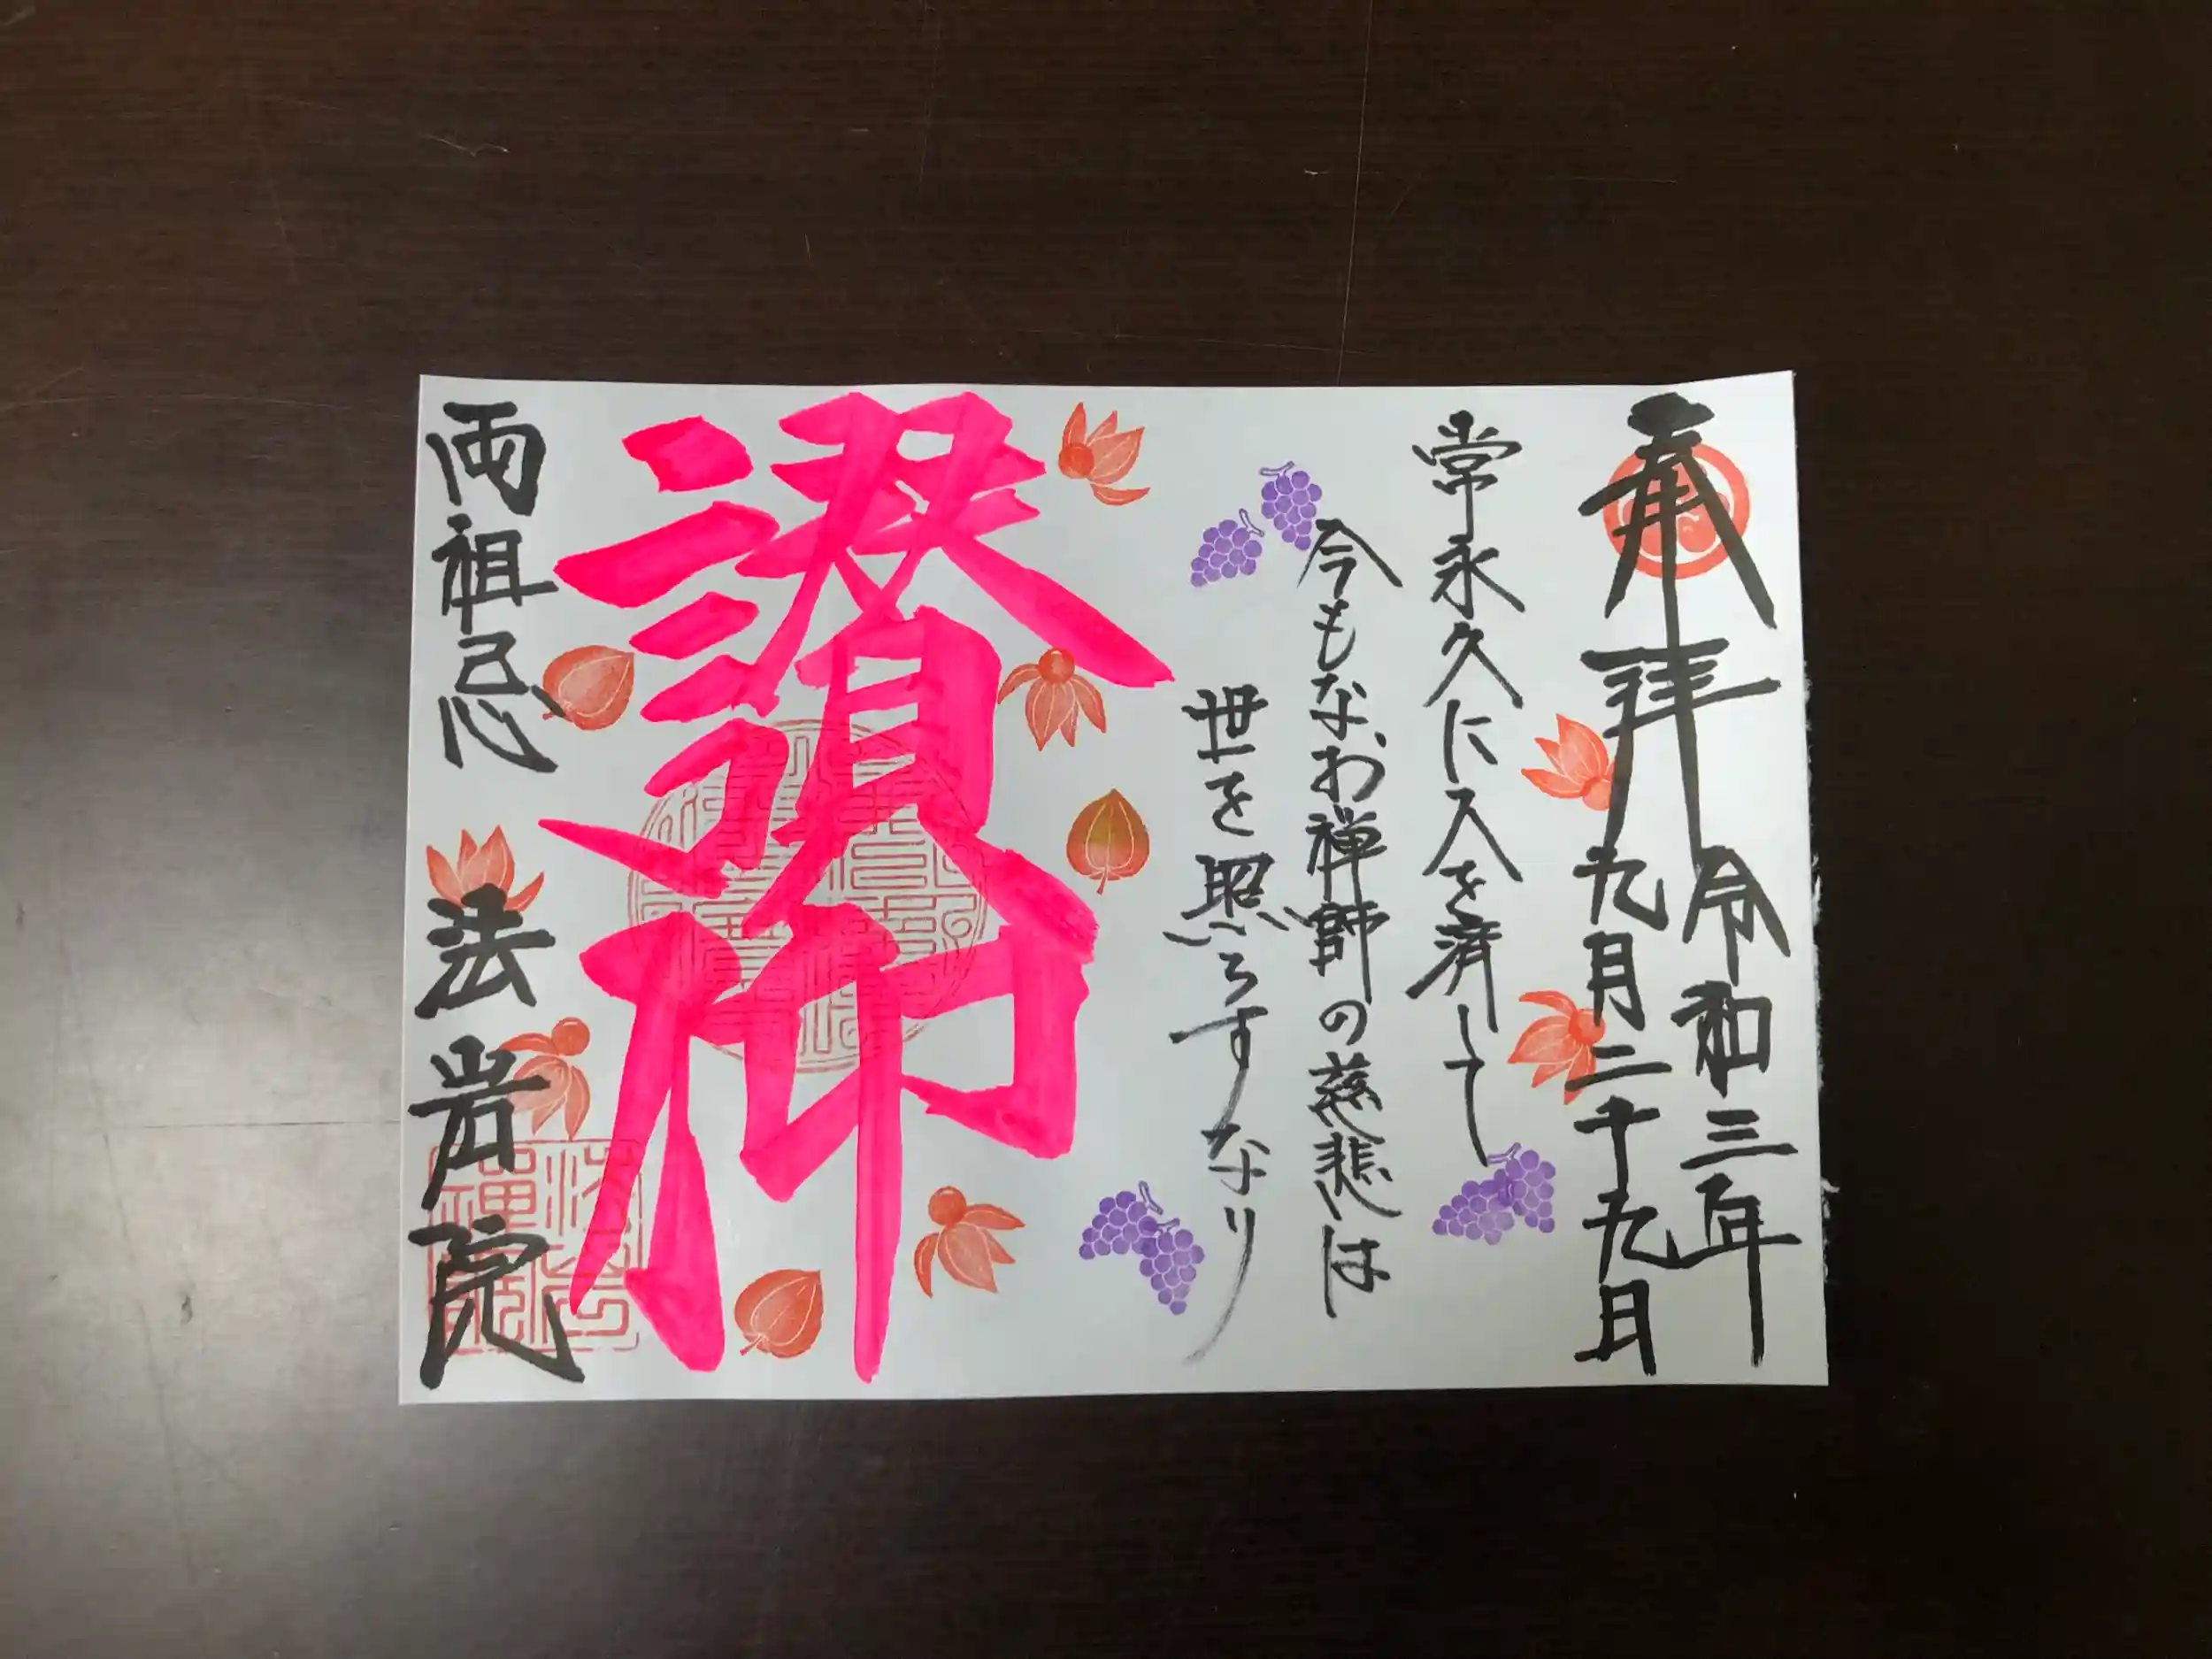 奉拝
令和三年
九月二十九日
常永久に人を済して
今もなお禅師の慈悲は
世を照らすなり
讃仰
両祖忌
法岩院